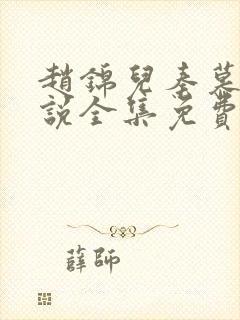 趙錦兒秦慕
說全集免費
薛師